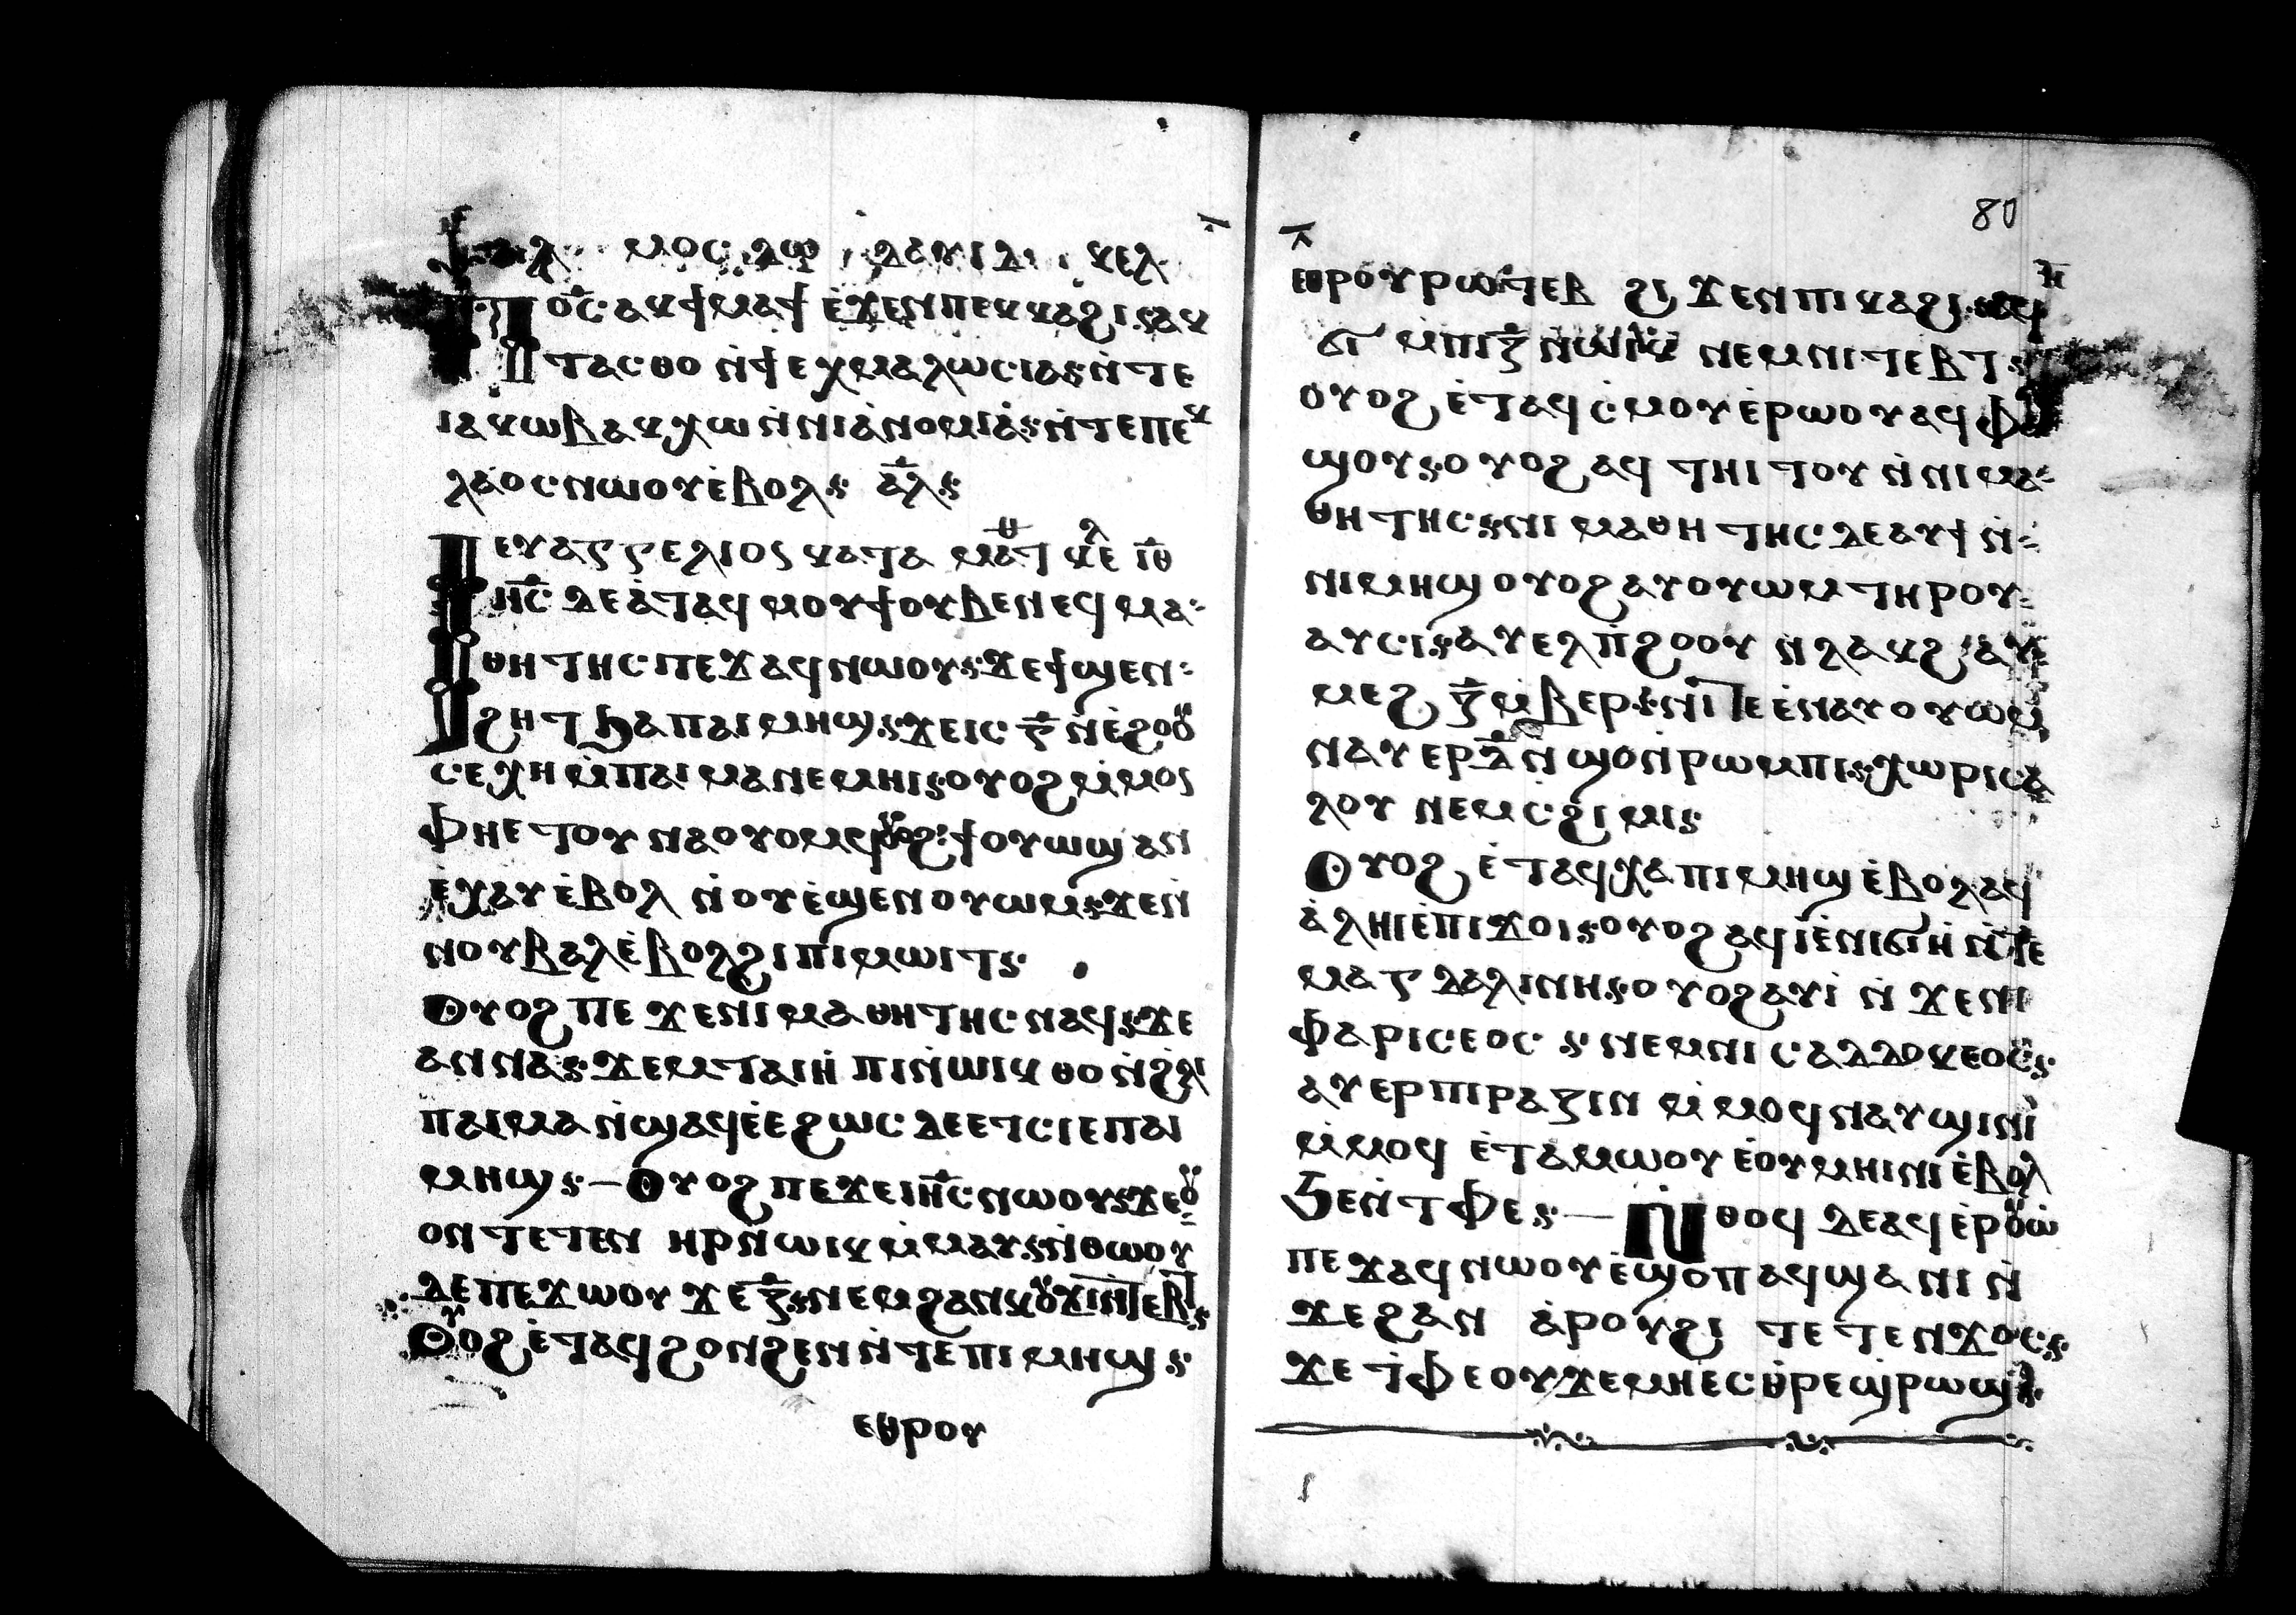 ⲯⲁⲗⲙⲟⲥ ⲇⲱ ⲇⲁⲩⲓⲇ ⲕⲉⲗ
Ⲡⲟ̅ⲥ̅ ⲁⲕϯⲙⲁϯ ⲉ̀ϫⲉⲛⲡⲉⲕⲕⲁϩⲓ: ⲁⲕ
ⲧⲁⲥⲑⲟ ⲛ̀ϯⲉⲭⲙⲁⲗⲱⲥⲓⲁ: ⲛ̀ⲧⲉ
ⲓⲁⲕⲱⲃ ⲁⲕⲭⲱ ⲛ̀ⲛⲓⲁ̀ⲛⲟⲙⲓⲁ̀: ⲛ̀ⲧⲉⲡⲉⲕ
ⲗⲁⲟⲥ ⲛⲱⲟⲩ ⲉ̀ⲃⲟⲗ: ⲁ̅ⲗ̅:
ⲉⲩⲁⲅⲅⲉⲗⲓⲟⲥ ⲕⲁⲧⲁ ⲙⲁⲧⲑ ⲕⲉⲗ ⲓ̅ⲑ̅
Ⲓⲏ̅ⲥ̅ ⲇⲉ ⲁ̀ⲧⲁϥⲙⲟⲩϯ ⲟⲩⲃⲉ ⲛⲉϥⲙⲁ
ⲑⲏⲧⲏⲥ ⲡⲉϫⲁϥ ⲛⲱⲟⲩ: ϫⲉ ϯϣⲉⲛ
ϩⲏⲧ ϧⲁ ⲡⲁⲓⲙⲏϣ: ϫⲉ ⲓⲥ ⲅ̅ ⲛ̀ⲉ̀ϩⲟⲟⲩ
ⲥⲉⲭⲏ ⲙ̀ⲡⲁⲓⲙⲁ ⲛⲉⲙⲏⲓ: ⲟⲩⲟϩ ⲙ̀ⲙⲟⲛ
ⲫⲏⲉⲧⲟⲩⲛⲁⲟⲩⲟⲙϥ ⲟⲩⲟϩ: ϯⲟⲩⲱϣ ⲁⲛ
ⲉ̀ⲭⲁⲩ ⲉ̀ⲃⲟⲗ ⲛ̀ⲟⲩⲉ̀ϣⲉⲛ ⲟⲩⲱⲙ: ϫⲉⲛ̀
ⲛⲟⲩⲃⲁⲗ ⲉ̀ⲃⲟⲗ ϩⲓ ⲡⲓⲙⲱⲓⲧ:
Ⲟⲩⲟϩ ⲡⲉϫⲉ ⲛⲓⲙⲁⲑⲏⲧⲏⲥ ⲛⲁϥ: ϫⲉ
ⲁⲛⲛⲁ: ϫⲉⲙ ⲧⲁⲓⲏ̀ⲡⲓ ⲛ̀ⲱⲓⲕ ⲑⲟ ⲛ̀ϩⲗⲓ
ⲡⲁⲓⲙⲁ ⲛ̀ϣⲁϥⲉ̀ ⲉ̀ϩⲱⲥⲇⲉ ⲉⲧⲥⲓⲉ ⲡⲁⲓ
ⲙⲏϣ: — Ⲟⲩⲟϩ ⲡⲉϫⲉ ⲓⲏ̅ⲥ̅ ⲛⲱⲟⲩ: ϫⲉ ⲟⲩ
ⲟⲛ ⲧⲉⲧⲉⲛ ⲏⲣ ⲛ̀ⲱⲓⲕ ⲙ̀ⲙⲁⲩ: ⲛ̀ⲑⲱⲟⲩ
ⲇⲉ ⲡⲉϫⲱⲟⲩ ϫⲉ ⲍ̅: ⲛⲉⲙ ϩⲁⲛⲕⲟⲩϫⲓ ⲛ̀ⲧⲉⲃⲧ:
Ⲟⲩⲟϩ ⲉ̀ⲧⲁϥϩⲟⲛϩⲉⲛ ⲛ̀ⲧⲉ ⲡⲓⲙⲏϣ:
ⲉⲑⲣⲟⲩ
ⲉⲑⲣⲟⲩⲣⲱⲧⲉⲃ ϩⲓϫⲉⲛ ⲡⲓⲕⲁϩⲓ: ⲁϥ
ϭⲓ ⲙ̀ⲡⲓⲍ̅ ⲛ̀ⲱⲓⲕ ⲛⲉⲙ ⲛⲓⲧⲉⲃⲧ:
ⲟⲩⲟϩ ⲉ̀ⲧⲁϥⲥ̀ⲙⲟⲩ ⲉ̀ⲣⲱⲟⲩ ⲁϥⲫⲁ
ϣⲟⲩ: ⲟⲩⲟϩ ⲁϥⲧⲏⲓⲧⲟⲩ ⲛ̀ⲛⲓⲙⲁ
ⲑⲏⲧⲏⲥ: ⲛⲓⲙⲁⲑⲏⲧⲏⲥ ⲇⲉ ⲁⲩϯ ⲛ̀
ⲛⲓⲙⲏϣ ⲟⲩⲟϩ ⲁⲩⲟⲩⲱⲙ ⲧⲏⲣⲟⲩ
ⲁⲩⲥⲓ: ⲁⲩⲉⲗ ⲡ̀ϩⲟⲟⲩ ⲛ̀ⲗⲁⲕϩ ⲁⲩ
ⲙⲉϩ ⲍ̅ ⲙ̀ⲃⲉⲣ: ⲛⲓ ⲡⲉ ⲉ̀ⲛⲁⲩⲟⲩⲱⲙ
ⲛⲁⲩⲉⲣ ⲇ̅ ⲛ̀ϣⲟ ⲛ̀ⲣⲱⲙⲡⲓ: ⲭⲱⲣⲓⲥ ⲁ
ⲗⲟⲩ ⲛⲉⲙ ⲥϩⲓⲙⲓ:
Ⲟⲩⲟϩ ⲉ̀ⲧⲁϥⲭⲁ ⲡⲓⲙⲏϣ ⲉ̀ⲃⲟⲗ ⲁϥ
ⲁ̀ⲗⲏⲓ ⲉ̀ⲡⲓϫⲟⲓ: ⲟⲩⲟϩ ⲁϥⲓ̀ ⲉ̀ⲛⲓϭⲓⲏ ⲛ̀ⲧⲉ
ⲙⲁⲅⲇⲁⲗⲓⲛⲏ: ⲟⲩⲟϩ ⲁⲩⲓ̀ ⲛ̀ϫⲉ ⲛⲓ
ⲫⲁⲣⲓⲥⲉⲟⲥ: ⲛⲉⲙ ⲛⲓⲥⲁⲇⲇⲟⲩⲕⲉⲟⲥ:
ⲁⲩⲉⲣⲡⲓⲣⲁⲍⲓⲛ ⲙ̀ⲙⲟϥ ⲛⲁⲩϣⲓⲛⲓ
ⲙ̀ⲙⲟϥ ⲉ̀ⲧⲁⲙⲱⲟⲩ ⲉ̀ⲟⲩⲙⲏⲓⲛⲓ ⲉ̀ⲃⲟⲗ
ϧⲉⲛ̀ ⲧⲫⲉ: — Ⲛ̀ⲑⲟϥ ⲇⲉ ⲁϥⲉ̀ⲣⲟⲩⲱ̀
ⲡⲉϫⲁϥ ⲛⲱⲟⲩ ⲉ̀ϣⲟⲡ ⲁϥϣⲁⲛⲓ ⲛ̀
ϫⲉ ϩⲁⲛ ⲁ̀ⲣⲟⲩϩⲓ ⲧⲉⲧⲉⲛϫⲟⲥ:
ϫⲉ ⲧ̀ⲫⲉ ⲟⲩϫⲉⲙⲏ ⲉⲥⲑ̀ⲣⲉϣⲣⲱϣ